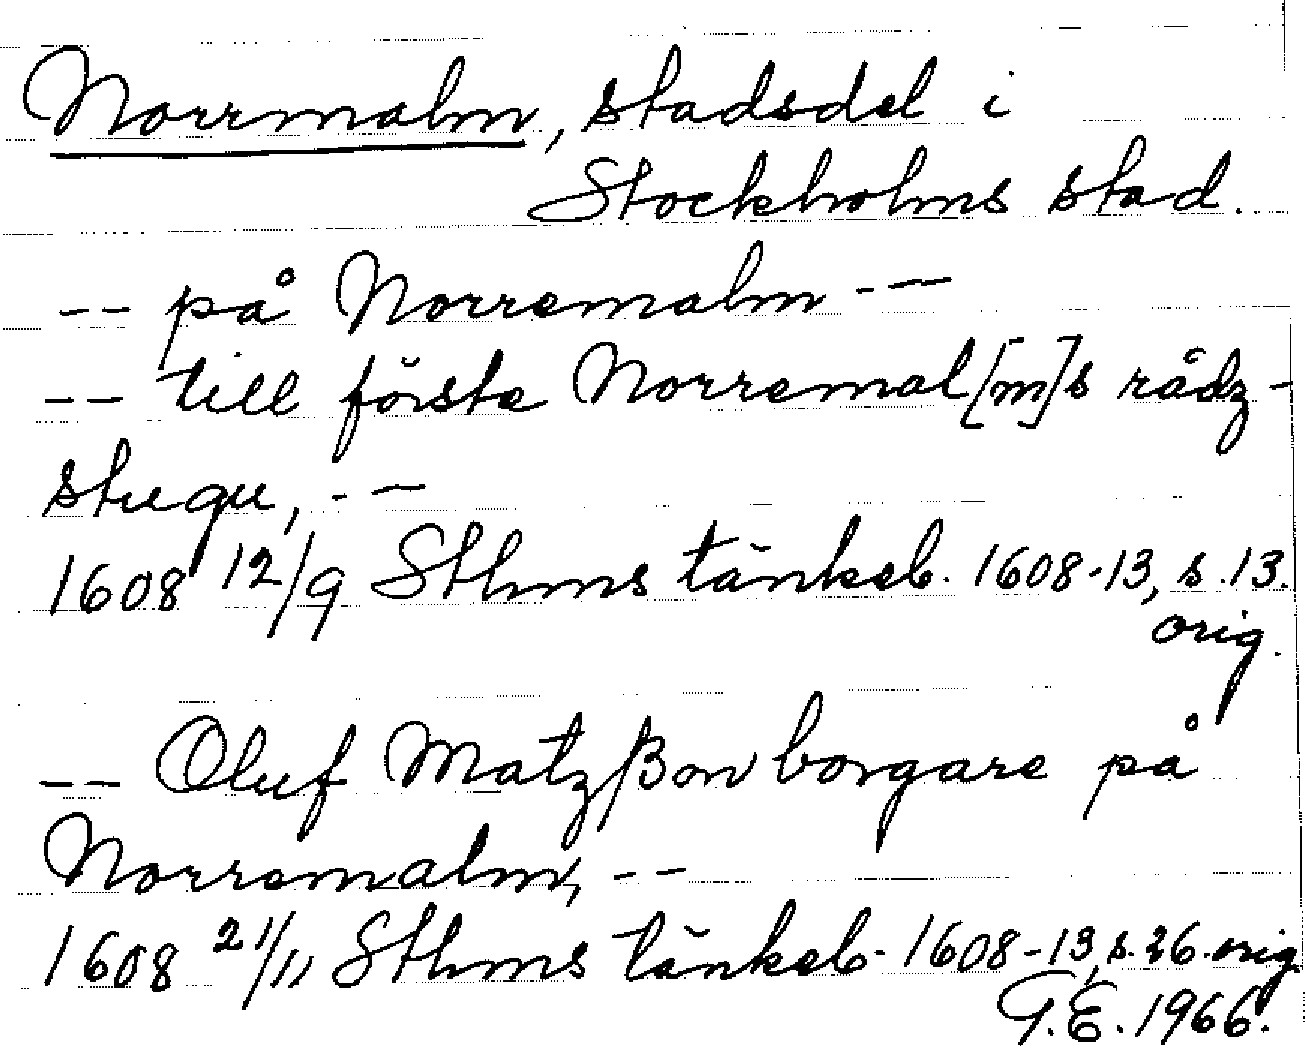 Norrmalm, stadsdel i
Stockholms stad.
-- på Norremalm ---
-- till förste Norremal[m]s rådz-
stugu, ---
1608 12/9 Sthms tänkeb. 1608-13, s. 13.
orig.
-- Oluf Matzßon borgare på
Norremalm, --
1608 21/11 Sthms tänkeb. 1608-13, s. 26. orig
G.E. 1966.